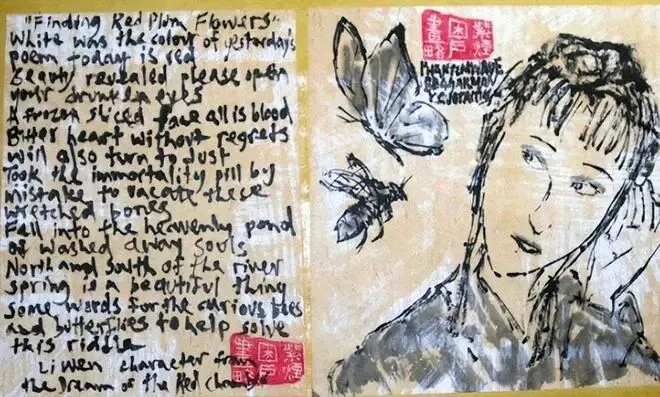 "Finding Red Plum Flowers"
White was the colour of yesterday's
poem today is red
Beauty revealed please open
your drunken eyes
A frozen sliced face all is blood
Bitter heart without regrets
will also turn to dust
Took the immortality pill by
mistake to vacate these
wretched bones
Fall into the heavenly pond
of washed away souls
North and South of the river
spring is a beautiful thing
Some words for the curious bees
and butterflies to help solve
this riddle
Li Wen character from
the Dream of the Red Chamber
紫煙
紫煙